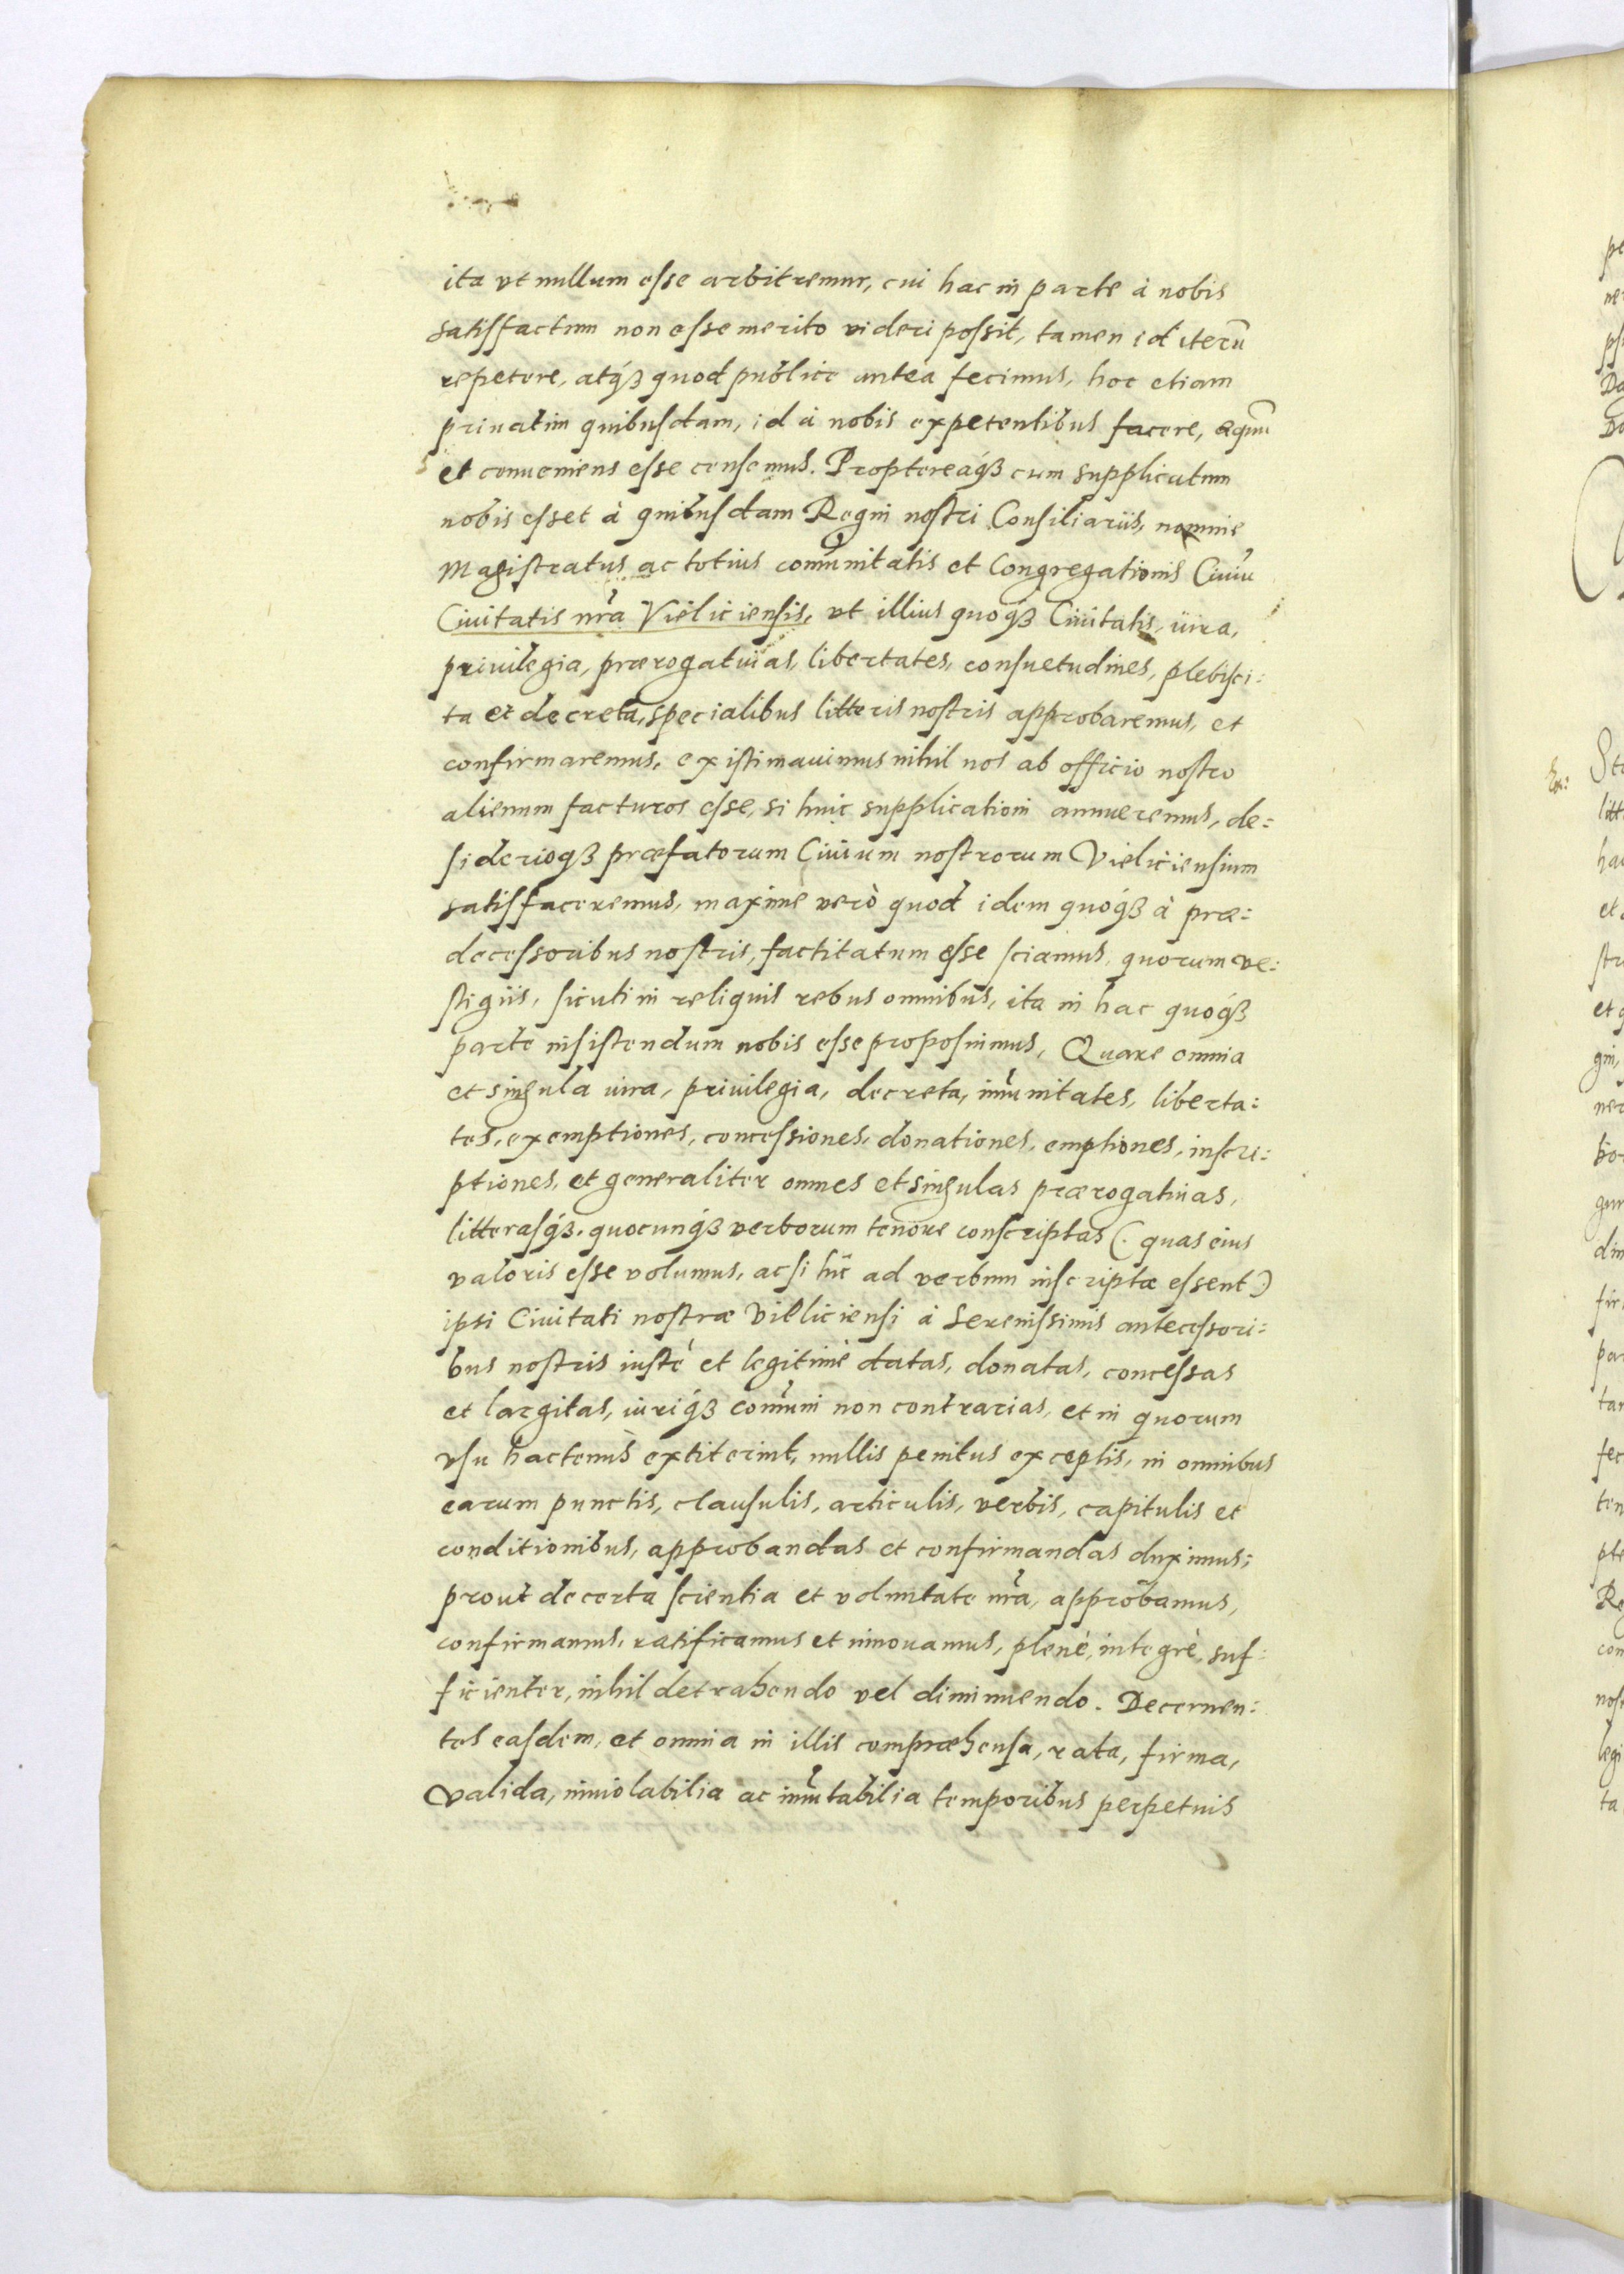 ita vt nullum esse arbitremur, cui hac in parte à nobis
satisfactum non esse merito videri possit, tamen id iterū
repetere, atq́ꝫ quod publicè antea fecimus, hoc etiam
priuatim quibusdam, id à nobis expetentibus facere, æquū
et conueniens esse censemus. Proptereaq́ꝫ cum supplicatum
nobis esset à quibusdam Regni nostri Consiliariis, nomine
Magistratus ac totius com̃unitatis et Congregationis Ciuiũ
Ciuitatis nr̃a Vieliciensis, vt illius quoq́ꝫ Ciuitatis, iura,
priuilegia, prærogatiuas, libertates, consuetudines, plebisci:
ta et decreta, specialibus litteris nostris approbaremus, et
confirmaremus, existimauimus nihil nos ab officio nostro
alienum facturos esse, si huic supplicationi annueremus, de:
siderioqꝫ præfatorum Ciuium nostrorum Vieliciensium
satisfaceremus, maximè verò quod idem quoq́ꝫ à præ:
decessoribus nostris, factitatum esse sciamus, quorum ve:
stigiis, sicuti in reliquis rebus omnibus, ita in hac quoq́ꝫ
parte insistendum nobis esse proposuimus, Quare omnia
et singula iura, priuilegia, decreta, im̃unitates, liberta:
tes, exemptiones, concessiones, donationes, emptiones, inscri:
ptiones, et generaliter omnes et singulas prærogatiuas,
litterasq́ꝫ. quocunq́ꝫ verborum tenore conscriptas (. quas eius
valoris esse volumus, ac si hîc ad verbum inscriptæ essent.)
ipsi Ciuitati nostræ Vieliciensi à Serenissimis antecessori:
bus nostris iustè et legitimè datas, donatas, concessas
et largitas, iuriq́ꝫ com̃uni non contrarias, et in quorum
vsu hactenùs extiterint, nullis penitus exceptis, in omnibus
earum punctis, clausulis, articulis, verbis, capitulis et
conditionibus, approbandas et confirmandas duximus;
prout de certa scientia et voluntate nr̃a, approbamus,
confirmamus, ratificamus et innouamus, plenè, integrè, suf:
ficienter, nihil detrahendo vel diminuendo. Decernen:
tes easdem, et omnia in illis compræhensa, rata, firma,
valida, inuiolabilia ac im̃utabilia temporibus perpetuis